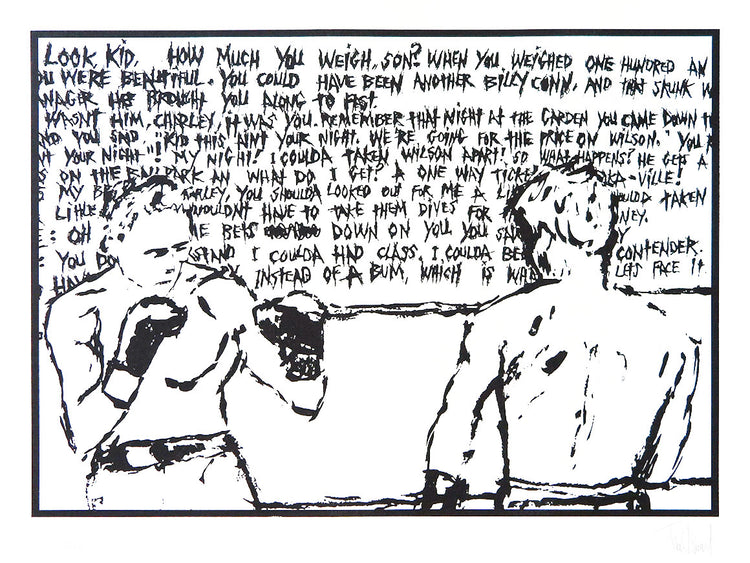 LOOK, KID, HOW MUCH YOU WEIGH, SON? WHEN YOU WEIGHED ONE HUNDRED AN
U WERE BEAUTIFUL. YOU COULD HAVE BEEN ANOTHER BILLY CONN, AND THAT SKUNK W
NAGER HE BROUGHT YOU ALONG TO FAST.
WASN'T HIM, CHARLEY, IT WAS YOU. REMEMBER THAT NIGHT AT THE GARDEN YOU CAME DOWN T
ND YOU SAID "KID THIS AINT YOUR NIGHT. WE'RE GOING FOR THE PRICE ON WILSON." YOU
T YOUR NIGHT"! MY NIGHT! I COULDA TAKEN WILSON APART! SO WHAT HAPPENS? HE GETS A
ON THE BALLPARK AN WHAT DO I GET? A ONE WAY TICKE OKA-VILLE!
MY ARLEY, YOU SHOULDA LOOKED OUT FOR ME A LI OULD TAKEN
LITTLE WOULDNT HAVE TO TAKE THEM DIVES FOR T NEY.
: OH ME BETS DOWN ON YOU YOU SA
YOU DO STAND I COULDA HAD CLASS, I COULDA BE CONTENDER.
HAV Y INSTEAD OF A BUM, WHICH IS WHA LETS FACE IT